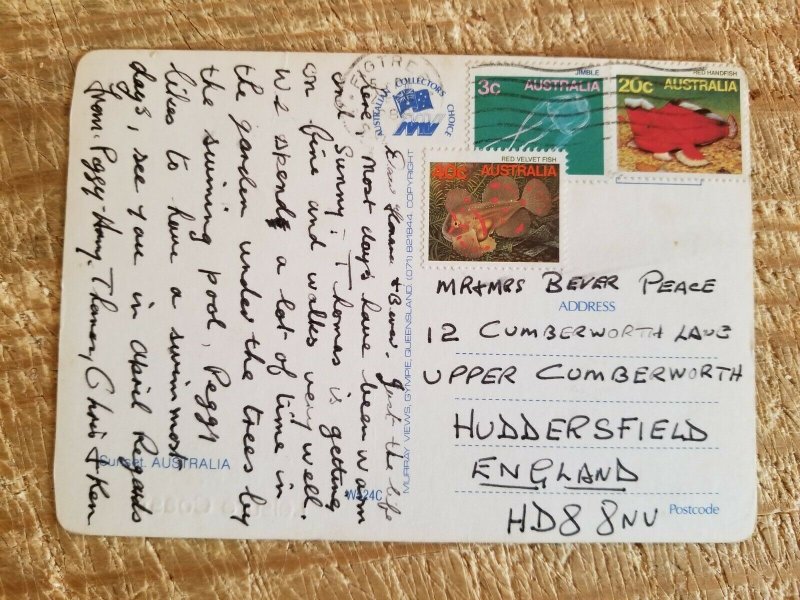 Just the life
here, Most days have been warm
and Sunny. Thomas is getting
on fine and walks very well.
We spends a lot of time in
the garden under the trees by
the swiming pool, Peggy
likes to have a swim most
days, see you in April Regards
from Peggy-Harry. Thomas, Chris + Ken
Sunset. AUSTRALIA
W424C
MURRAY VIEWS, GYMPIE, QUEENSLAND. (071) 821844. COPYRIGHT
AUSTRALIAN COLLECTORS CHOICE
JIMBLE
3c AUSTRALIA
RED HANDFISH
20c AUSTRALIA
RED VELVET FISH
AUSTRALIA
MR+MRS BEVER PEACE
ADDRESS
12 CUMBERWORTH LANE
UPPER CUMBERWORTH
HUDDERSFIELD
ENGLAND
HD8 8NU
Postcode